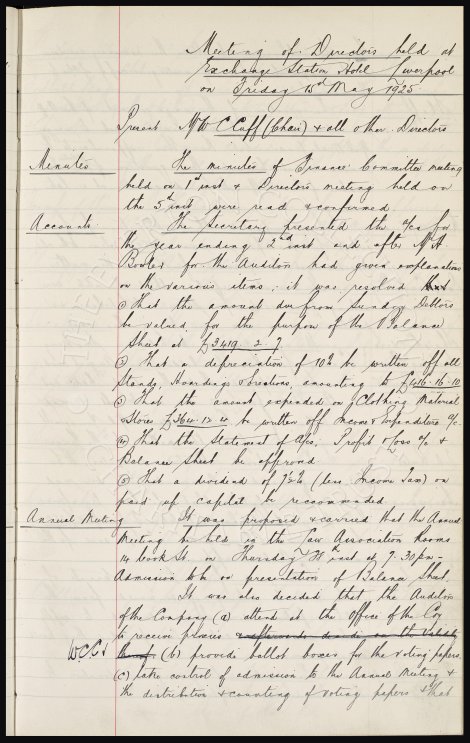 Meeting of Directors held at
Exchange Station Hotel Liverpool
on Friday 15th May 1925
Present Mr W C Cuff (Chair) & all other Directors
Minutes The minutes of Finance Committee meeting
held on 1st inst & Directors meeting held on
the 5th inst were read & confirmed.
Accounts The Secretary presented the a/cs for
the year ending 2nd inst and after Mr A
Bowler for the Auditors had given explanations
on the various items; it was resolved that
(1) That the amount due from Sundry Debtors
be valued for the purpose of the Balance
Sheet at £3419. 2. 7
(2) That a depreciation of 10% be written off all
Stands, Hoardings & erections, amounting to £416.16.10
(3) That the amount expended on Clothing Material
Stores £364.12.4 be written off Income & Expenditure a/c.
(4) That the Statement of A/cs, Profit & Loss a/c &
Balance Sheet be approved
(5) That a dividend of 7½% (less Income Tax) on
paid up capital be recommended.
Annual Meeting It was proposed & carried that the Annual
Meeting be held in the Law Association Rooms
14 Cook St. on Thursday inst at 7.30pm -
Admission to be on presentation of Balance Sheet.
It was also decided that the Auditors
of the Company (a) attend at the Office of the Coy
to receive proxies & afterwards decide on the validity
WCC thereof (b) provide ballot boxes for the voting papers
(c) take control of admission to the Annual Meeting &
the distribution & counting of voting papers & that